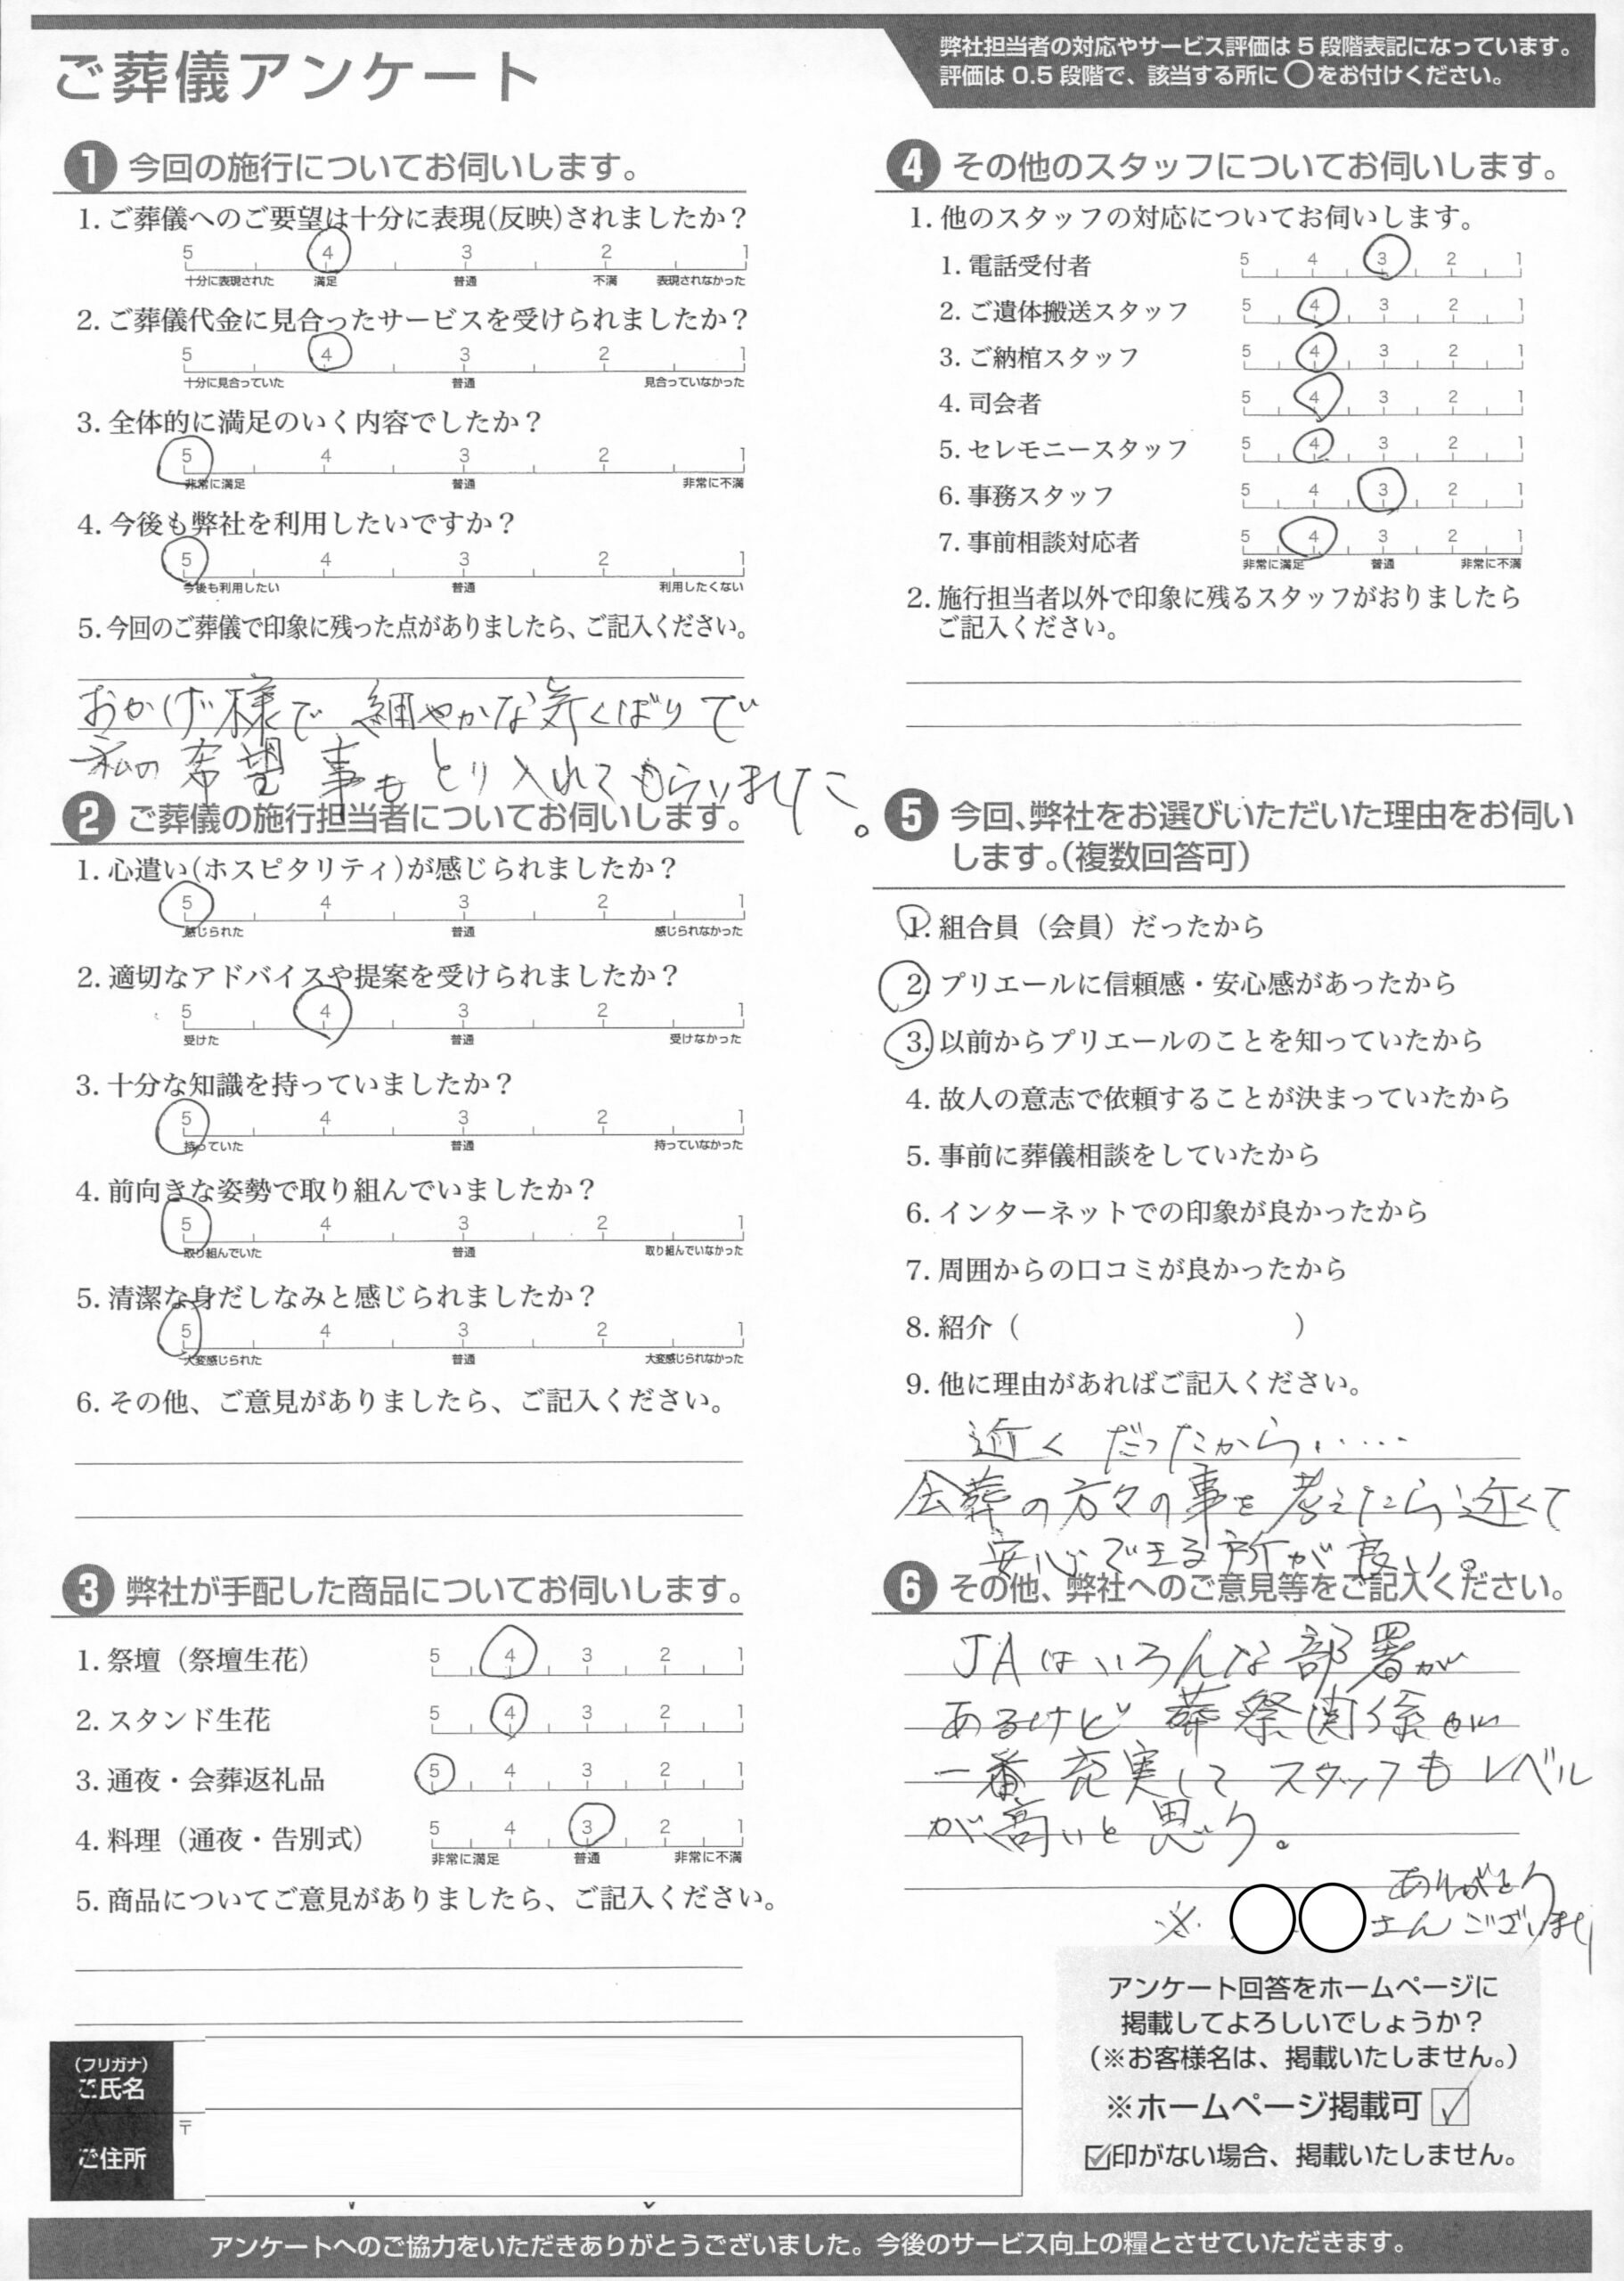 ご葬儀アンケート
弊社担当者の対応やサービス評価は 5 段階表記になっています。
評価は 0.5 段階で、該当する所に ○ をお付けください。
1 今回の施行についてお伺いします。
1. ご葬儀へのご要望は十分に表現(反映)されましたか?
5 4 3 2 1
十分に表現された 満足 普通 不満 表現されなかった
2. ご葬儀代金に見合ったサービスを受けられましたか?
5 4 3 2 1
十分に見合っていた 普通 見合っていなかった
3. 全体的に満足のいく内容でしたか?
5 4 3 2 1
非常に満足 普通 非常に不満
4. 今後も弊社を利用したいですか?
5 4 3 2 1
今後も利用したい 普通 利用したくない
5. 今回のご葬儀で印象に残った点がありましたら、ご記入ください。
おかげ様で 細やかな気くばりで
私の希望事もとり入れてもらいました。
2 ご葬儀の施行担当者についてお伺いします。
1. 心遣い(ホスピタリティ)が感じられましたか?
5 4 3 2 1
感じられた 普通 感じられなかった
2. 適切なアドバイスや提案を受けられましたか?
5 4 3 2 1
受けた 普通 受けなかった
3. 十分な知識を持っていましたか?
5 4 3 2 1
持っていた 普通 持っていなかった
4. 前向きな姿勢で取り組んでいましたか?
5 4 3 2 1
取り組んでいた 普通 取り組んでいなかった
5. 清潔な身だしなみと感じられましたか?
5 4 3 2 1
大変感じられた 普通 大変感じられなかった
6. その他、ご意見がありましたら、ご記入ください。
3 弊社が手配した商品についてお伺いします。
1. 祭壇（祭壇生花） 5 4 3 2 1
2. スタンド生花 5 4 3 2 1
3. 通夜・会葬返礼品 5 4 3 2 1
4. 料理（通夜・告別式） 5 4 3 2 1
非常に満足 普通 非常に不満
5. 商品についてご意見がありましたら、ご記入ください。
4 その他のスタッフについてお伺いします。
1. 他のスタッフの対応についてお伺いします。
1. 電話受付者 5 4 3 2 1
2. ご遺体搬送スタッフ 5 4 3 2 1
3. ご納棺スタッフ 5 4 3 2 1
4. 司会者 5 4 3 2 1
5. セレモニースタッフ 5 4 3 2 1
6. 事務スタッフ 5 4 3 2 1
7. 事前相談対応者 5 4 3 2 1
非常に満足 普通 非常に不満
2. 施行担当者以外で印象に残るスタッフがおりましたら
ご記入ください。
5 今回、弊社をお選びいただいた理由をお伺い
します。(複数回答可)
1. 組合員（会員）だったから
2. プリエールに信頼感・安心感があったから
3. 以前からプリエールのことを知っていたから
4. 故人の意志で依頼することが決まっていたから
5. 事前に葬儀相談をしていたから
6. インターネットでの印象が良かったから
7. 周囲からの口コミが良かったから
8. 紹介（ ）
9. 他に理由があればご記入ください。
近くだったから、、・・・
会葬の方々の事を考えたら近くて
安心できる所が良い。
6 その他、弊社へのご意見等をご記入ください。
JAはいろんな部署が
あるけど 葬祭関係が
一番充実して スタッフもレベル
が高いと思う。
ありがとう
※ ○○さんございます
アンケート回答をホームページに
掲載してよろしいでしょうか?
(※お客様名は、掲載いたしません。)
※ホームページ掲載可 ☑
☑印がない場合、掲載いたしません。
(フリガナ)
ご氏名
〒
ご住所
アンケートへのご協力をいただきありがとうございました。今後のサービス向上の糧とさせていただきます。